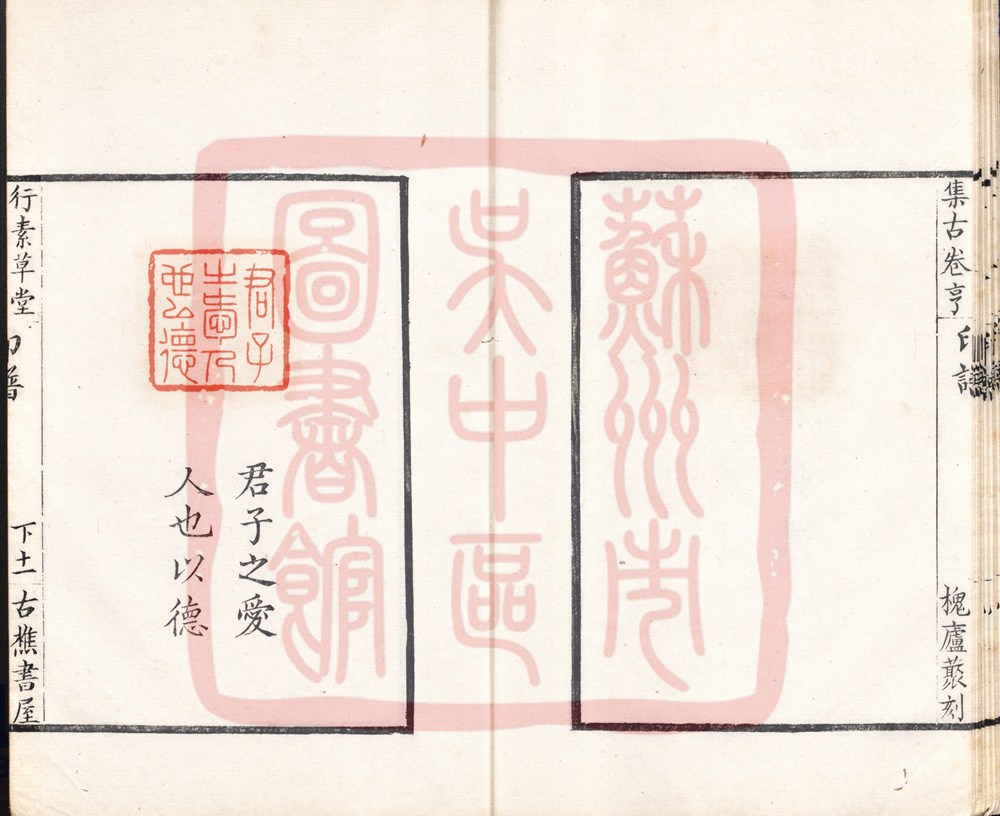 集古卷亨
印譜
槐廬叢刻
蘇州市
吳中區
圖書館
君子
之愛人
也以德
君子之愛
人也以德
行素草堂
印譜
下十一
古樵書屋